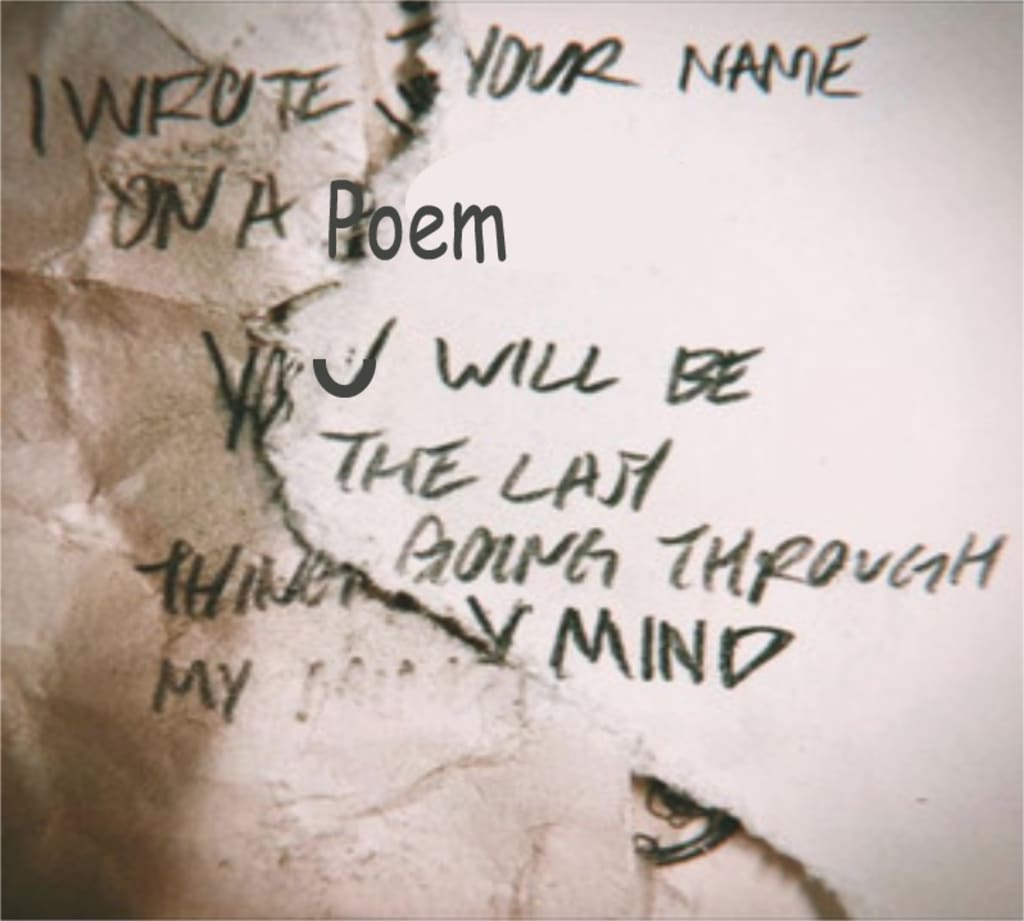 I WROTE YOUR NAME
ON A Poem
YOU WILL BE
THE LAST
THING GOING THROUGH
MY MIND